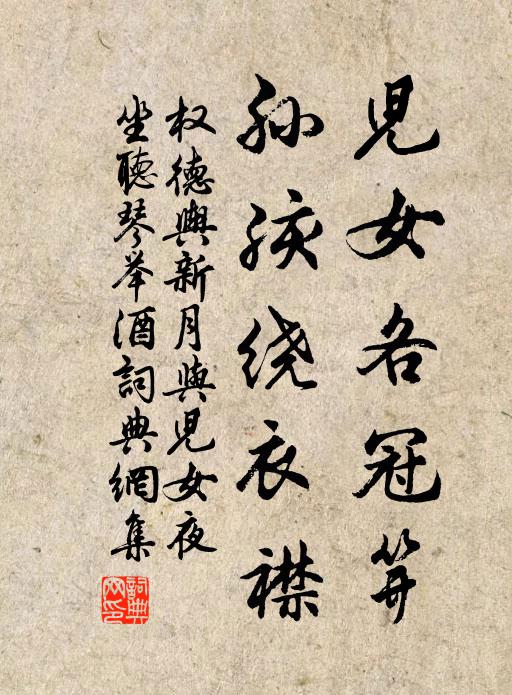 児女各冠笄
孙孩绕衣襟
权德輿新月與児女夜
坐聽琴举酒詞典網集
詞典網印